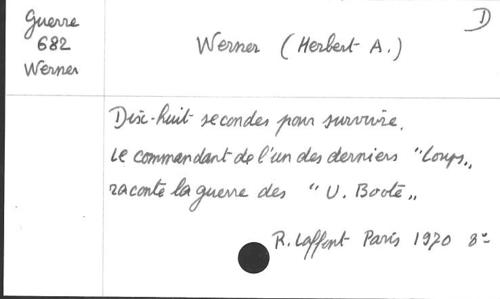 D
Guerre
682
Werner
Werner (Herbert A.)
Dix-huit secondes pour survivre.
Le commandant de l'un des derniers "Loups"
raconte la guerre des "U. Boote"
R. Laffont Paris 1970 8°